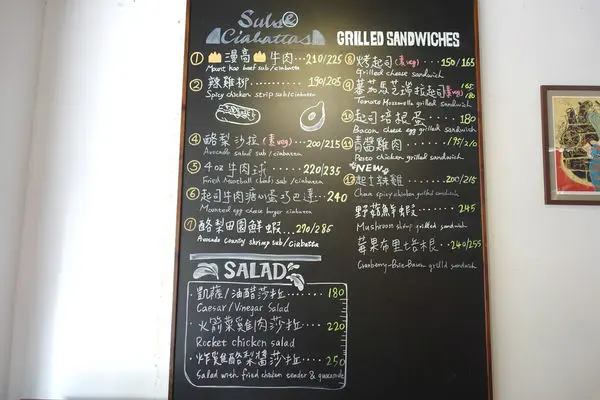 Subs &
Ciabattas
① 漫高 牛肉...210/225
Mount Kao beef sub/ciabatta
② 辣雞柳 ...... 190/205
Spicy chicken strip sub/ciabatta
④ 酪梨沙拉(素veg)...200/215
Avocado salad sub/ciabatta
⑤ 4oz 牛肉球...... 220/235
Meatball sub/ciabatta
⑥ 起司牛肉蛋巧巴達...240
egg cheese burger ciabatta
⑦ 酪梨田園鮮蝦...270/285
Avocado country shrimp sub/ciabatta
SALAD
· 凱薩/油醋莎拉...... 180
Caesar/Vinegar Salad
· 火箭菜雞肉莎拉... 220
Rocket chicken salad
· 炸雞酪梨醬莎拉... 250
Salad with fried chicken tender & guacamole
GRILLED SANDWICHES
⑧ 烤起司(素veg)...150/165
Grilled cheese sandwich
⑨ 蕃茄馬芝瑞拉起司(素veg) 165/180
Tomato Mozzarella grilled sandwich
⑩ 起司培根蛋...... 180
Bacon cheese egg grilled sandwich
⑪ 青醬雞肉......195/210
Pesto chicken grilled sandwich
NEW
⑫ 起士辣雞......200/215
spicy chicken grilled sandwich
野菇鮮蝦...... 245
Mushroom shrimp grilled sandwich
莓果布里培根...240/255
Cranberry-Brie-Bacon grilled sandwich